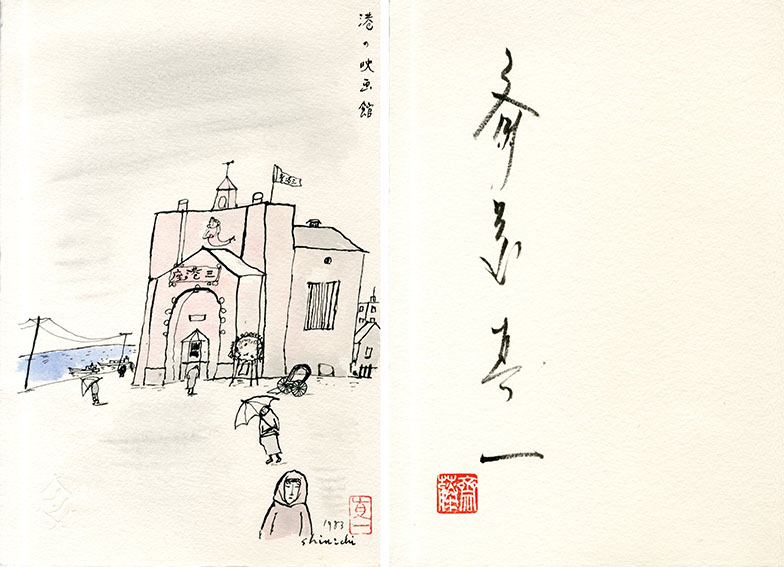 港の映画館
三港座
1983
shinichi
真一
斎藤真一
齋藤